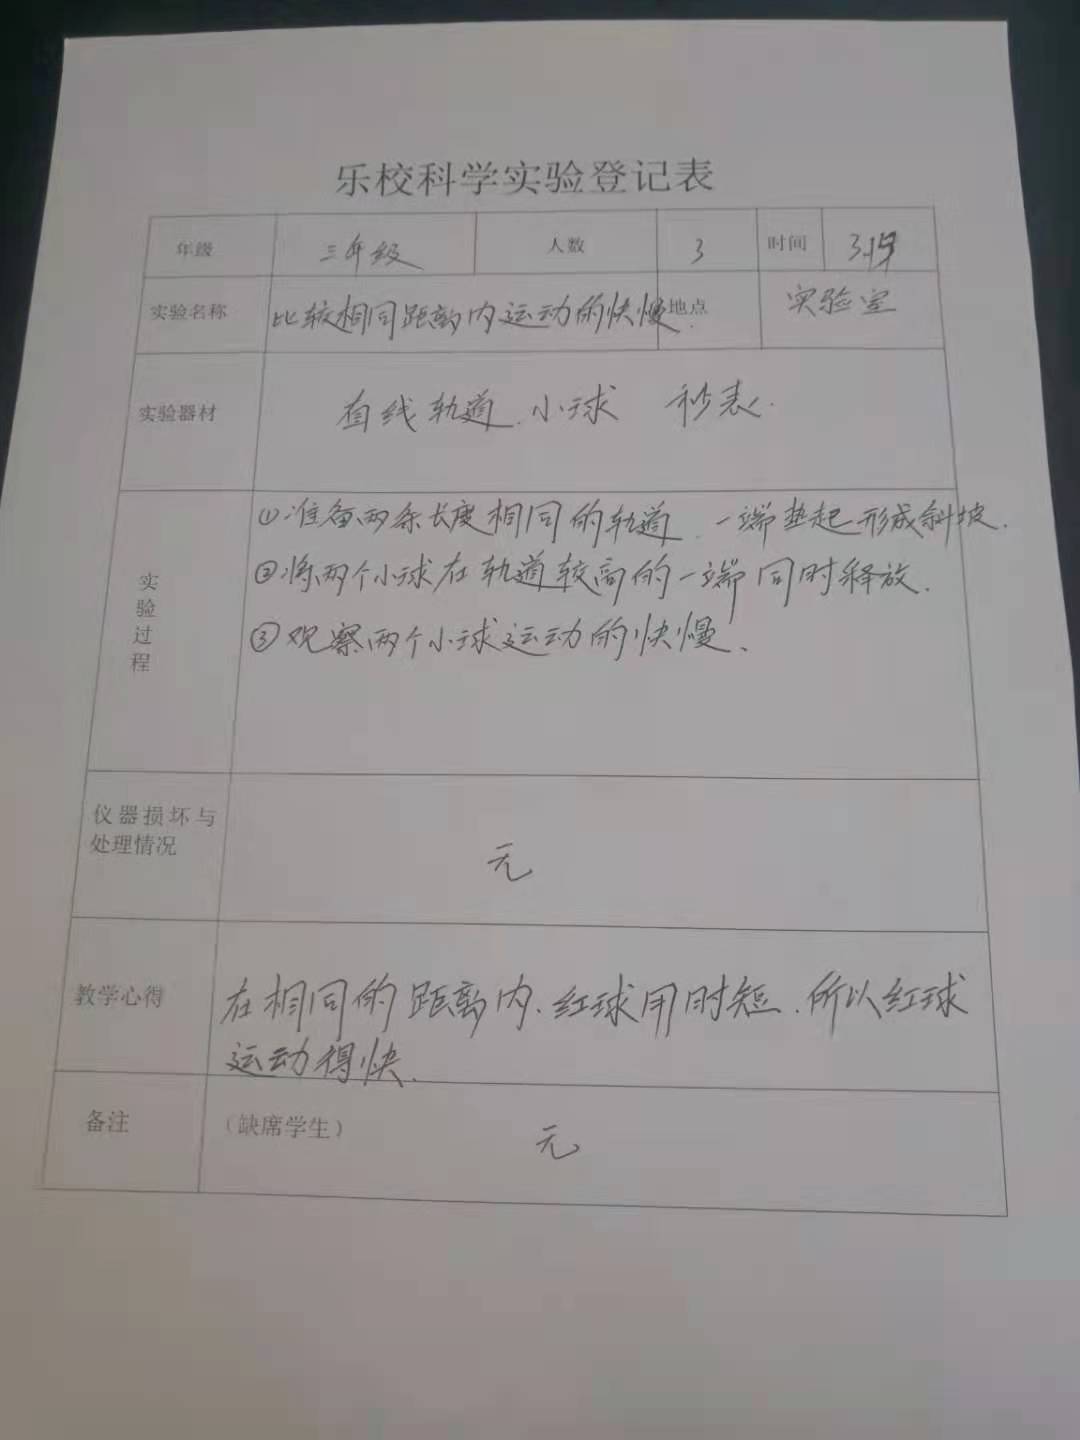 乐校科学实验登记表
年级 三年级 人数 3 时间
实验名称 比较相同距离内运动的快慢. 地点 实验室
实验器材 直线轨道.小球 秒表.
实验过程
①准备两条长度相同的轨道.一端垫起形成斜坡.
②将两个小球在轨道较高的一端同时释放.
③观察两个小球运动的快慢.
仪器损坏与
处理情况
无
教学心得 在相同的距离内.红球用时短.所以红球
运动得快.
备注 (缺席学生) 无